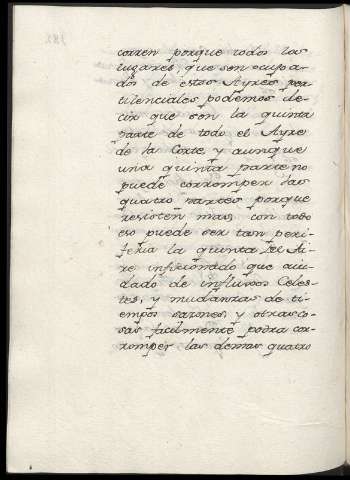 corren porque todos los
lugares, que son ocupa-
dos de estos Ayres pes-
tilenciales podemos de-
cir que son la quinta
parte de todo el Ayre
de la Corte, y aunque
una quinta parte no
puede corromper las
quatro partes porque
resisten mas, con todo
eso puede ser tan pesti-
fera la quinta del Ai-
re inficionado que aiu-
dado de influxos Celes-
tes, y mudanzas de ti-
empos sazones, y otras co-
sas facilmente podra cor-
romper las demas quatro